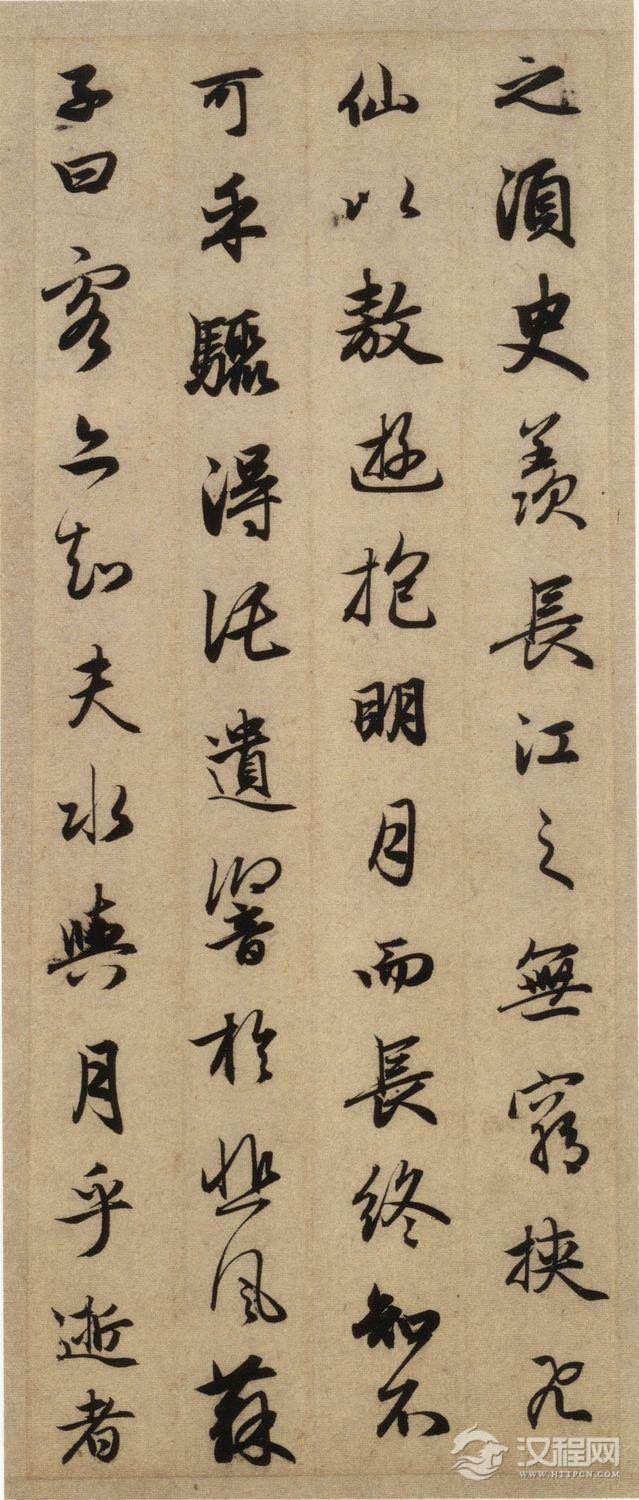 之須臾羨長江之無窮挾飛
仙以敖遊抱明月而長終知不
可乎驟得託遺響於悲風蘇
子曰客亦知夫水與月乎逝者
汉程网
WWW.HTTPCN.COM